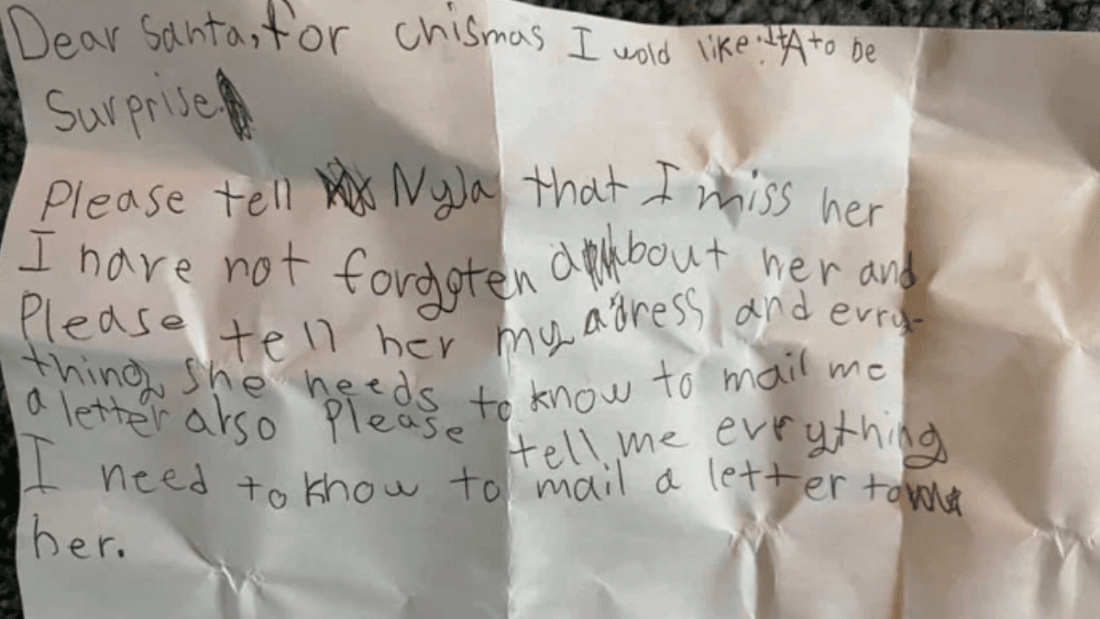 Dear Santa, for chismas I wold like it A to be
Surprise.
Please tell Nyla that I miss her
I have not forgoten about her and
Please tell her my adress and evry-
thing she needs to know to mail me
a letter also Please tell me evrything
I need to know to mail a letter to
her.